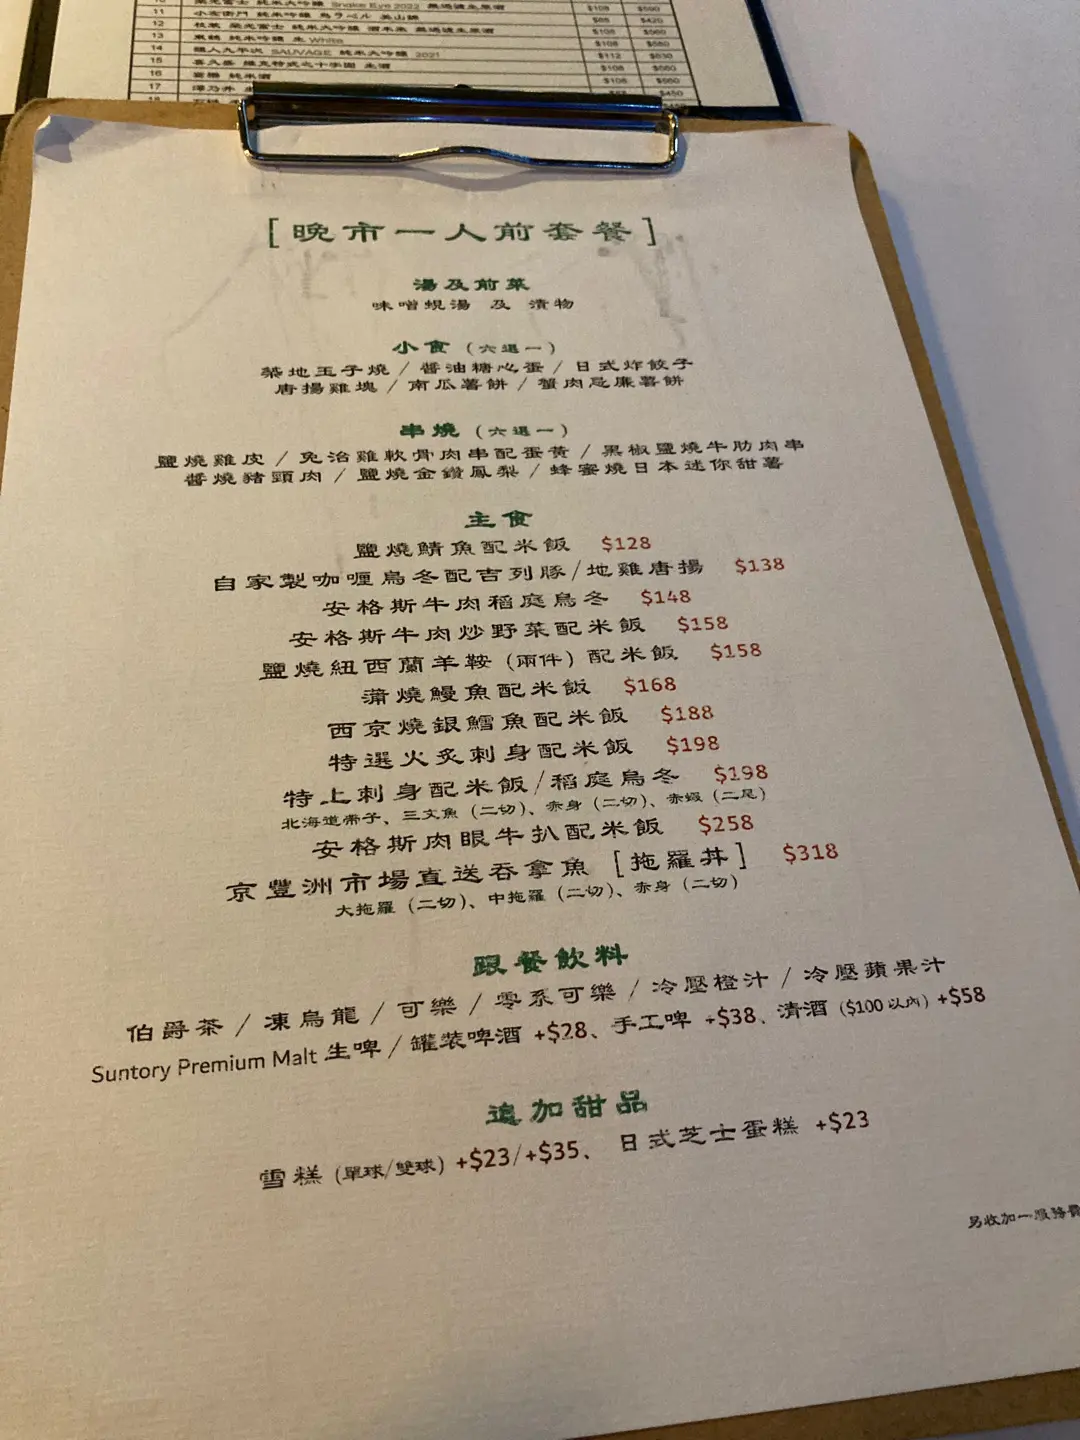 11 小左衛門 純米吟醸 鳥ラベル 美山錦 $88 $420
13 東鶴 純米吟醸 生 White $108 $580
14 醸人九平次 SAUVAGE 純米大吟醸 2021 $112 $630
16 純米酒 $108 $560
17 澤乃井 $450
18
[ 晚市一人前套餐 ]
湯及前菜
味噌蜆湯 及 漬物
小食 (六選一)
築地玉子燒 / 醬油糖心蛋 / 日式炸餃子
唐揚雞塊 / 南瓜薯餅 / 蟹肉忌廉薯餅
串燒 (六選一)
鹽燒雞皮 / 免治雞軟骨肉串配蛋黃 / 黑椒鹽燒牛肋肉串
醬燒豬頸肉 / 鹽燒金鑽鳳梨 / 蜂蜜燒日本迷你甜薯
主食
鹽燒鯖魚配米飯 $128
自家製咖喱烏冬配吉列豚/地雞唐揚 $138
安格斯牛肉稻庭烏冬 $148
安格斯牛肉炒野菜配米飯 $158
鹽燒紐西蘭羊鞍 (兩件) 配米飯 $158
蒲燒鰻魚配米飯 $168
西京燒銀鱈魚配米飯 $188
特選火炙刺身配米飯 $198
特上刺身配米飯/稻庭烏冬 $198
北海道帶子、三文魚 (二切)、赤身 (二切)、赤蝦 (二尾)
安格斯肉眼牛扒配米飯 $258
京豐洲市場直送吞拿魚 [拖羅丼] $318
大拖羅 (二切)、中拖羅 (二切)、赤身 (二切)
跟餐飲料
伯爵茶 / 凍烏龍 / 可樂 / 零系可樂 / 冷壓橙汁 / 冷壓蘋果汁
Suntory Premium Malt 生啤 / 罐装啤酒 +$28、手工啤 +$38、清酒 ($100 以內) +$58
追加甜品
雪糕 (單球/雙球) +$23/+$35、 日式芝士蛋糕 +$23
另收加一服務費